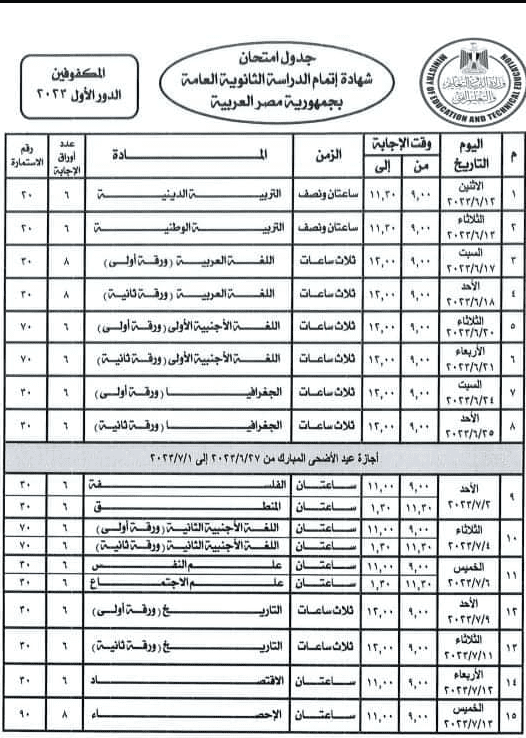 جدول امتحان
شهادة إتمام الدراسة الثانوية العامة
بجمهورية مصر العربية
المكفوفين
الدور الأول ٢٠٢٣
MINISTRY OF EDUCATION AND TECHNICAL
م | اليوم التاريخ | وقت الإجابة من | إلى | الزمن | المادة | عدد أوراق الإجابة | رقم الاستمارة
١ | الاثنين ٢٠٢٣/٦/١٢ | ٩,٠٠ | ١١,٣٠ | ساعتان ونصف | التربية الدينية | ٦ | ٢٠
٢ | الثلاثاء ٢٠٢٣/٦/١٣ | ٩,٠٠ | ١١,٣٠ | ساعتان ونصف | التربية الوطنية | ٦ | ٢٠
٣ | السبت ٢٠٢٣/٦/١٧ | ٩,٠٠ | ١٢,٠٠ | ثلاث ساعات | اللغة العربية (ورقة أولى) | ٨ | ٣٠
٤ | الأحد ٢٠٢٣/٦/١٨ | ٩,٠٠ | ١٢,٠٠ | ثلاث ساعات | اللغة العربية (ورقة ثانية) | ٨ | ٣٠
٥ | الثلاثاء ٢٠٢٣/٦/٢٠ | ٩,٠٠ | ١٢,٠٠ | ثلاث ساعات | اللغة الأجنبية الأولى (ورقة أولى) | ٦ | ٧٠
٦ | الأربعاء ٢٠٢٣/٦/٢١ | ٩,٠٠ | ١٢,٠٠ | ثلاث ساعات | اللغة الأجنبية الأولى (ورقة ثانية) | ٦ | ٧٠
٧ | السبت ٢٠٢٣/٦/٢٤ | ٩,٠٠ | ١٢,٠٠ | ثلاث ساعات | الجغرافيا (ورقة أولى) | ٦ | ٣٠
٨ | الأحد ٢٠٢٣/٦/٢٥ | ٩,٠٠ | ١٢,٠٠ | ثلاث ساعات | الجغرافيا (ورقة ثانية) | ٦ | ٣٠
أجازة عيد الأضحى المبارك من ٢٠٢٣/٦/٢٧ إلى ٢٠٢٣/٧/١
٩ | الأحد ٢٠٢٣/٧/٢ | ٩,٠٠ | ١١,٠٠ | ساعتان | الفلسفة | ٦ | ٣٠
١١,٣٠ | ١,٣٠ | ساعتان | المنطق | ٦ | ٣٠
١٠ | الثلاثاء ٢٠٢٣/٧/٤ | ٩,٠٠ | ١١,٠٠ | ساعتان | اللغة الأجنبية الثانية (ورقة أولى) | ٦ | ٧٠
١١,٣٠ | ١,٣٠ | ساعتان | اللغة الأجنبية الثانية (ورقة ثانية) | ٦ | ٧٠
١١ | الخميس ٢٠٢٣/٧/٦ | ٩,٠٠ | ١١,٠٠ | ساعتان | علم النفس | ٦ | ٣٠
١١,٣٠ | ١,٣٠ | ساعتان | علم الاجتماع | ٦ | ٣٠
١٢ | الأحد ٢٠٢٣/٧/٩ | ٩,٠٠ | ١٢,٠٠ | ثلاث ساعات | التاريخ (ورقة أولى) | ٦ | ٣٠
١٣ | الثلاثاء ٢٠٢٣/٧/١١ | ٩,٠٠ | ١٢,٠٠ | ثلاث ساعات | التاريخ (ورقة ثانية) | ٦ | ٣٠
١٤ | الأربعاء ٢٠٢٣/٧/١٢ | ٩,٠٠ | ١١,٠٠ | ساعتان | الاقتصاد | ٦ | ٣٠
١٥ | الخميس ٢٠٢٣/٧/١٣ | ٩,٠٠ | ١١,٠٠ | ساعتان | الإحصاء | ٨ | ٩٠